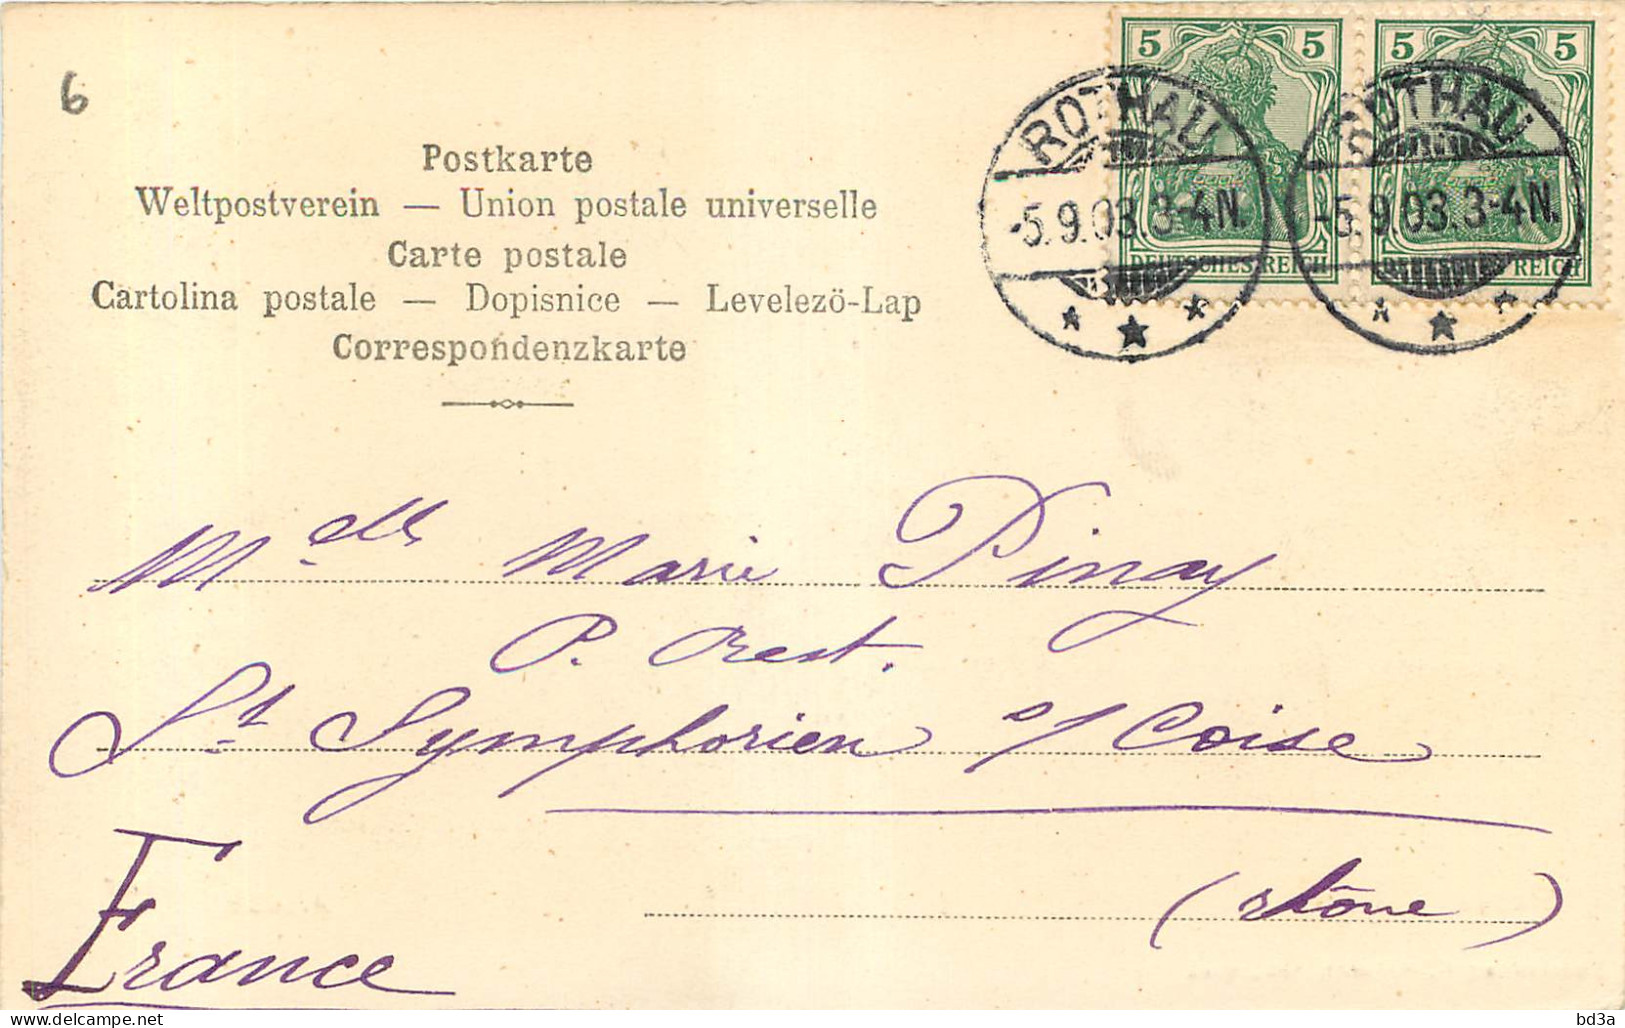 6
5 5 5 5
ROTHAU ROTHAU
-5.9.03.3-4N. -5.9.03.3-4N.
DEUTSCHES REICH REICH
Postkarte
Weltpostverein — Union postale universelle
Carte postale
Cartolina postale — Dopisnice — Levelezö-Lap
Correspondenzkarte
Melle Marie Pinay
P. Rest.
St Symphorien s/ Coise
(Rhône)
France
delcampe.net
bd3a